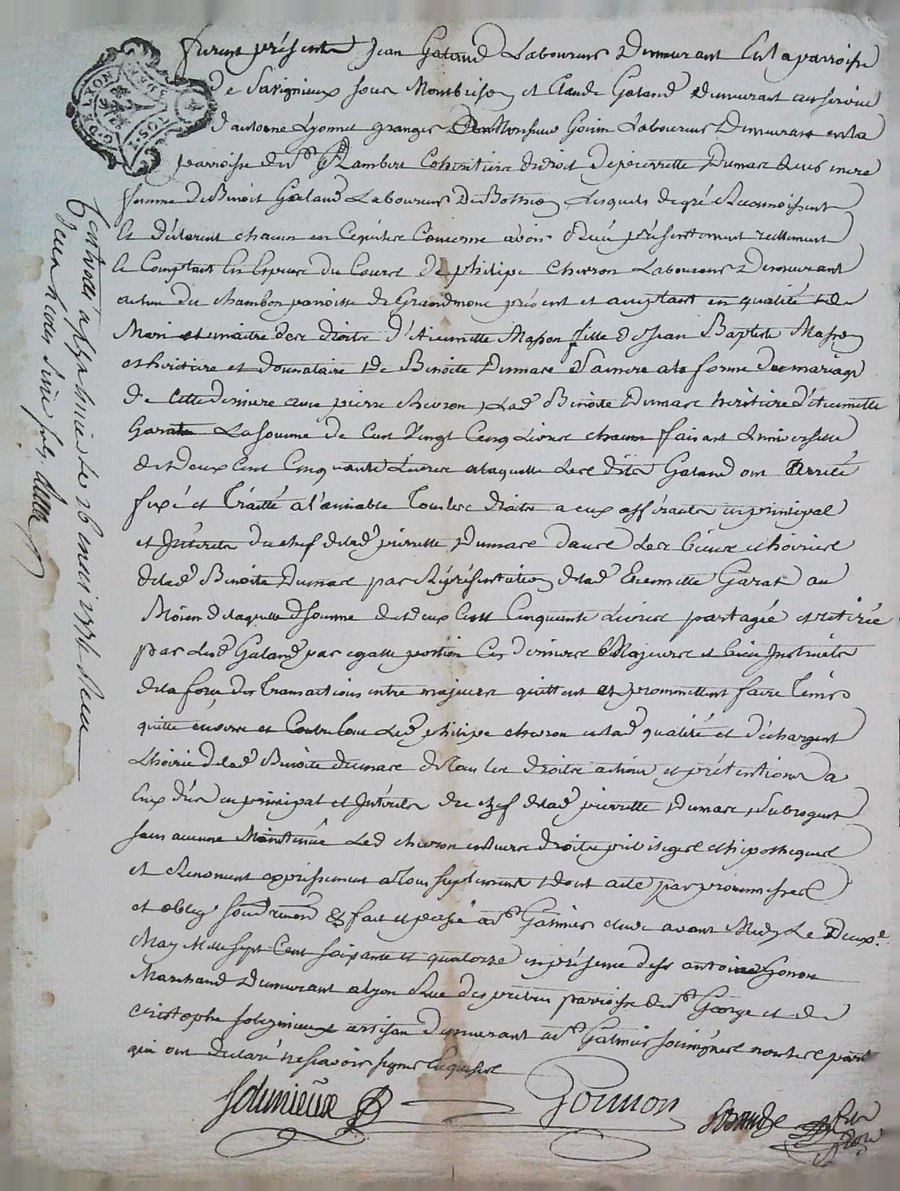 furent présents Jean Galand Laboureur Demeurant En la parroisse
de Savignieux sous Montbrison et Claude Galand demeurant au service
d'antoine Lyonnet granger Laboureur Demeurant en la
parroisse de St Rambert Cohéritiers de droit de pierrette Dumas leur mere
femme de Benoit Galand Laboureur De Bothéon lesquels de gré Reconnoissent
et déclarent chacun en avoir Reçu présentement réellement
et Comptant En Especes du Cours De philipe chevron Laboureur Demeurant
au lieu du chambon parroisse de Grandmont présent et acceptant en qualité de
Mari et maitre des droits d'Etiennette Masson fille de Jean Baptiste Masson
et héritiere et donnataire de Benoite Dumas a la forme du mariage
de Cette derniere avec pierre chevron, Lade Benoite Dumas héritiere d'Etiennette
Garat La somme de Cent Vingt Cinq Livres chacun faisant
de deux cent Cinquante Livres a laquelle Lesdits Galand ont
fixé et Traitté a l'amiable Tous les Droits a eux afférants en principal
et Intérets du chef de lade pierrette Dumas dans Les biens et hoiries
de lade Benoite Dumas par Représentation de lade Etiennette Garat au
Moien de laquelle Somme de deux Cent Cinquante Livres partagée et retirée
par lesd Galand par egalle portion Ces derniers Majeurs et bien Instruits
de la force des Transactions entre majeurs quittent et promettent faire Tenir
quitte envers et Contre tous Led philipe chevron en lade qualité et déchargent
L'hoirie de lade Benoite Dumas de Tous les droits actions et prétentions a
Eux dus en principal et Intérets du chef de lade pierrette Dumas, Subrogent
sans aucune Led chevron en leurs Droits privileges et hipotheques
et Renoncent expressement a Tous supléments, Dont acte par promesses
et oblig. fait et passé a St Galmier etude avant Midy Le Deuxe.
May Mil sept Cent soixante et quatorze en présence de sr antoine Gonon
Marchand Demeurant a Lyon Rue des pretres parroisse de St George et de
Cristophe artisan demeurant a St Galmier soussignés non les parties
qui ont déclaré ne savoir signer Enquises
Gonon
Controllé a le 16 1774 Reçu
G. DE LYON